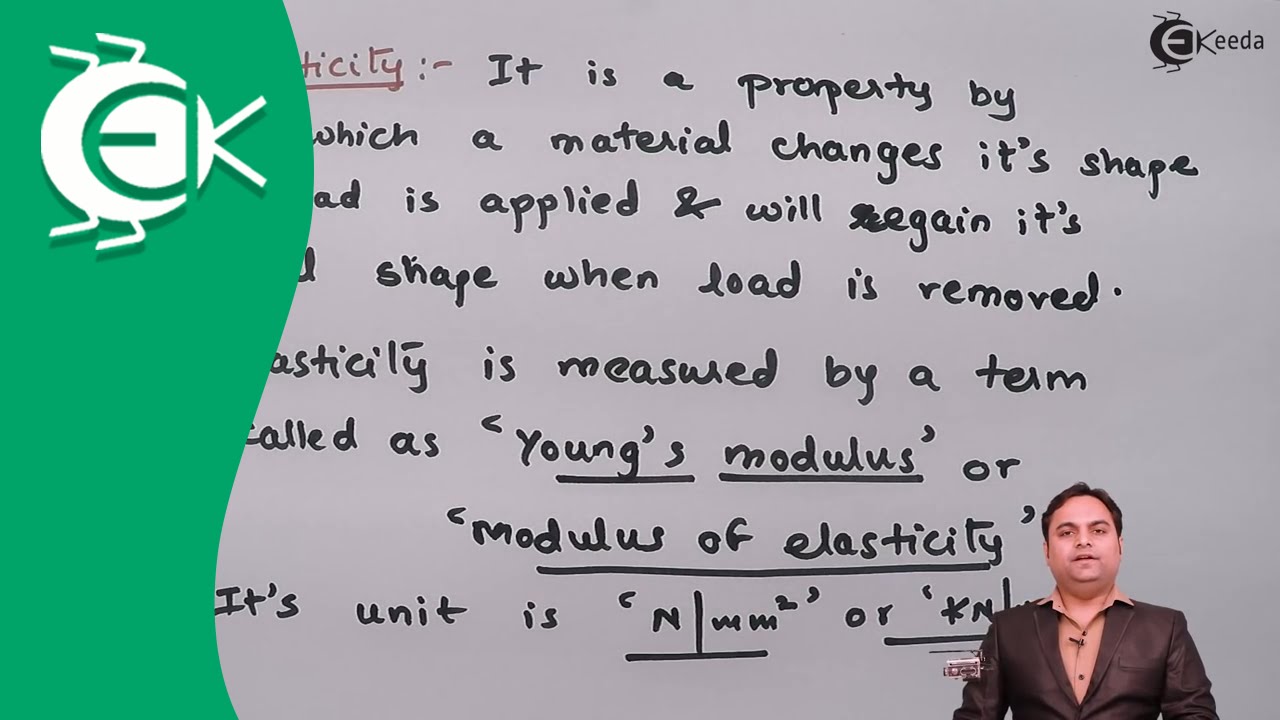 EK
EKeeda
ticity:- It is a property by
which a material changes it's shape
ad is applied & will regain it's
l shape when load is removed.
asticity is measured by a term
called as 'Young's modulus' or
'modulus of elasticity'
It's unit is 'N|mm²' or 'KN|